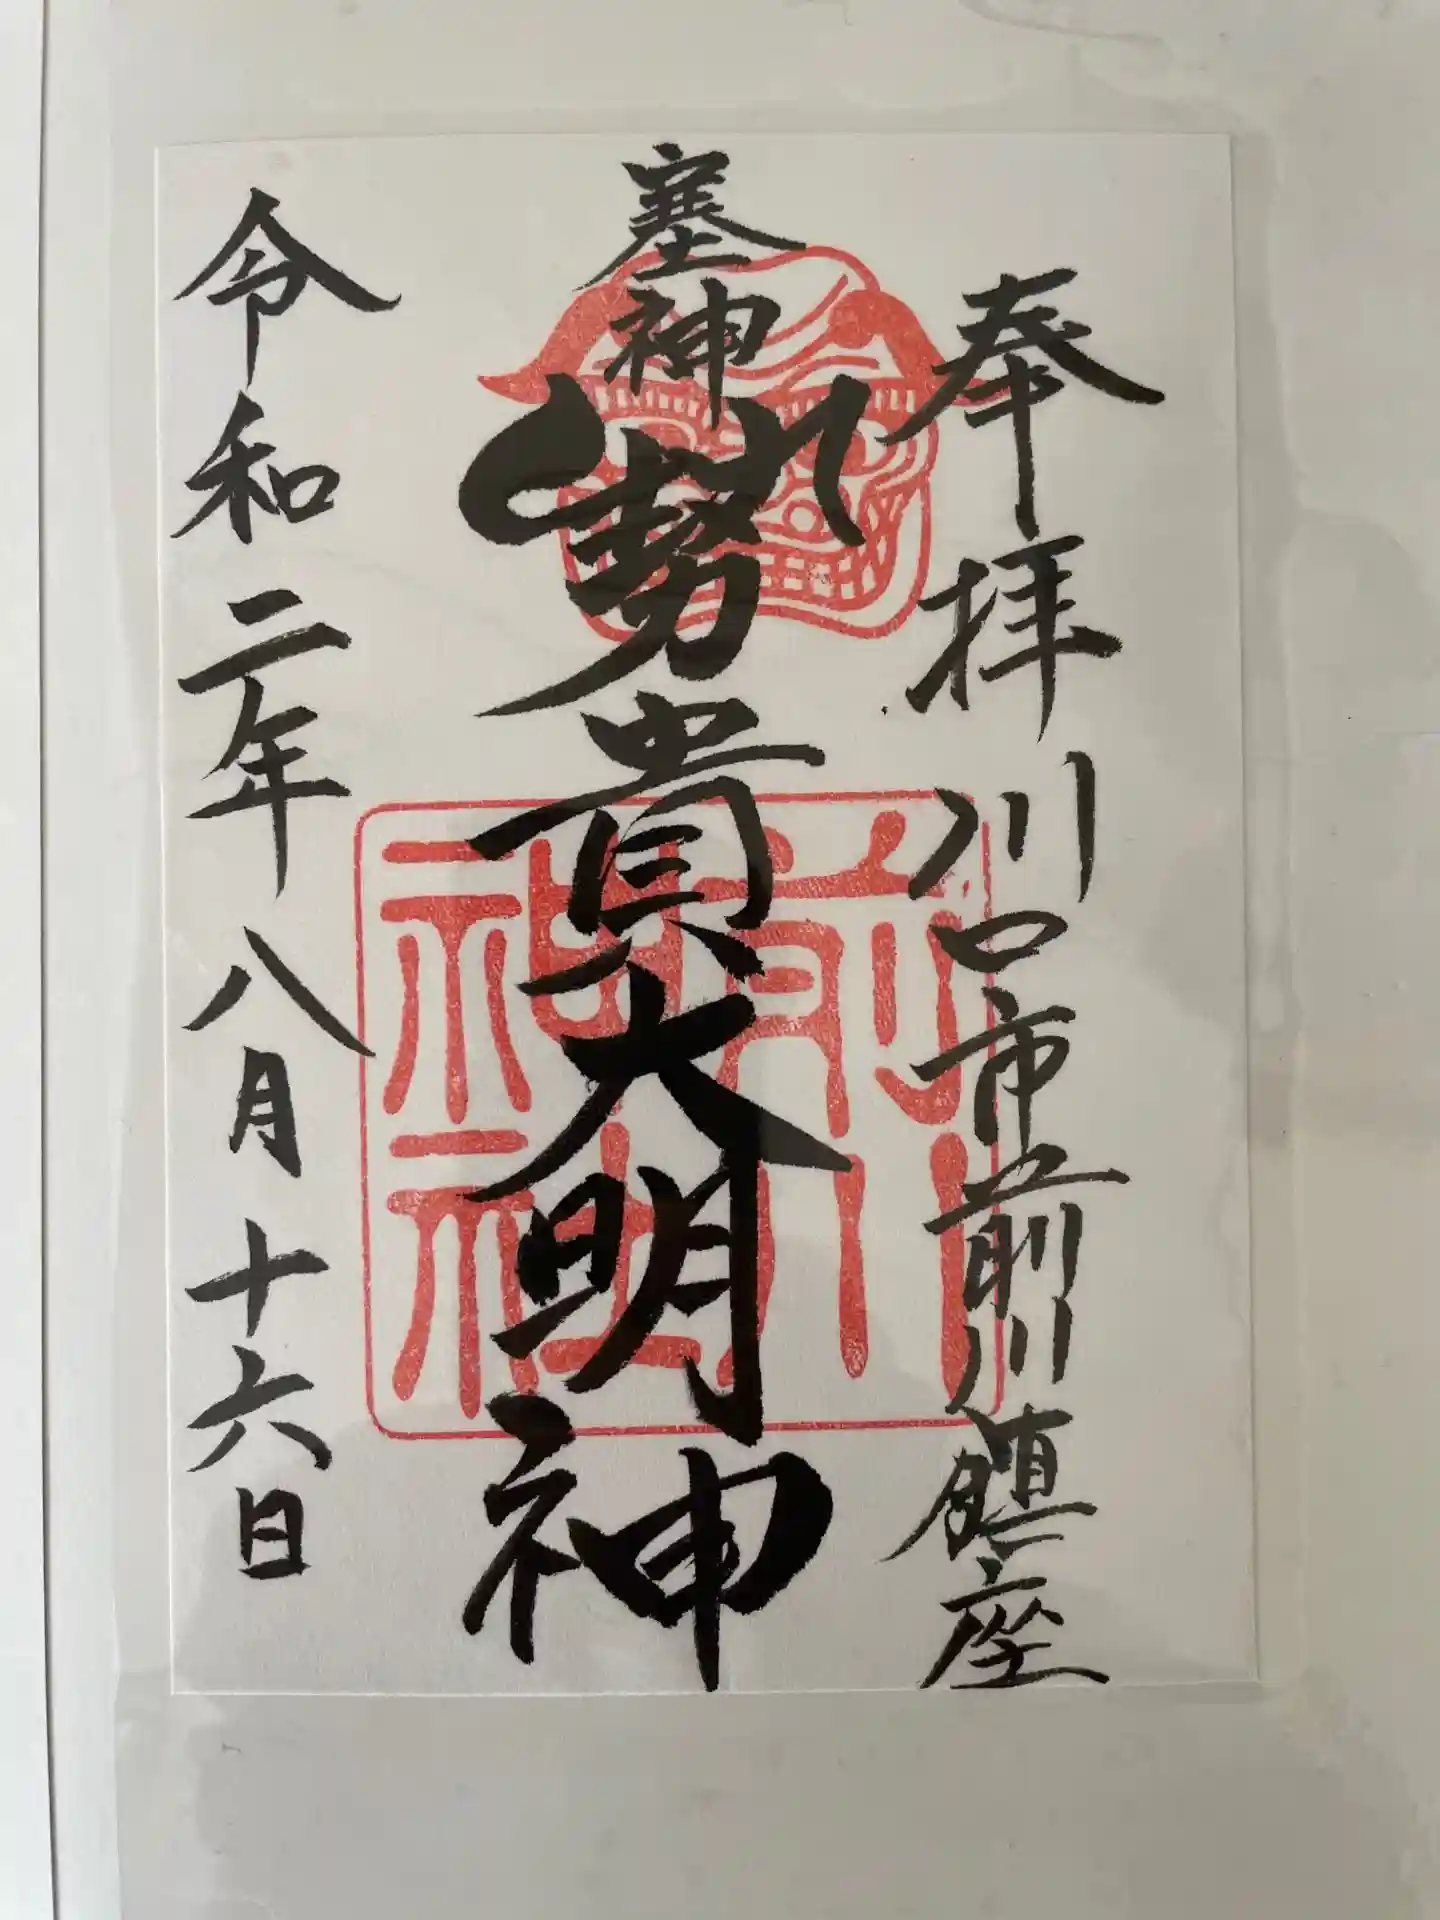 奉拝 川口市前川鎮座
塞神
勢貴大明神
前川
神社
令和二年八月十六日